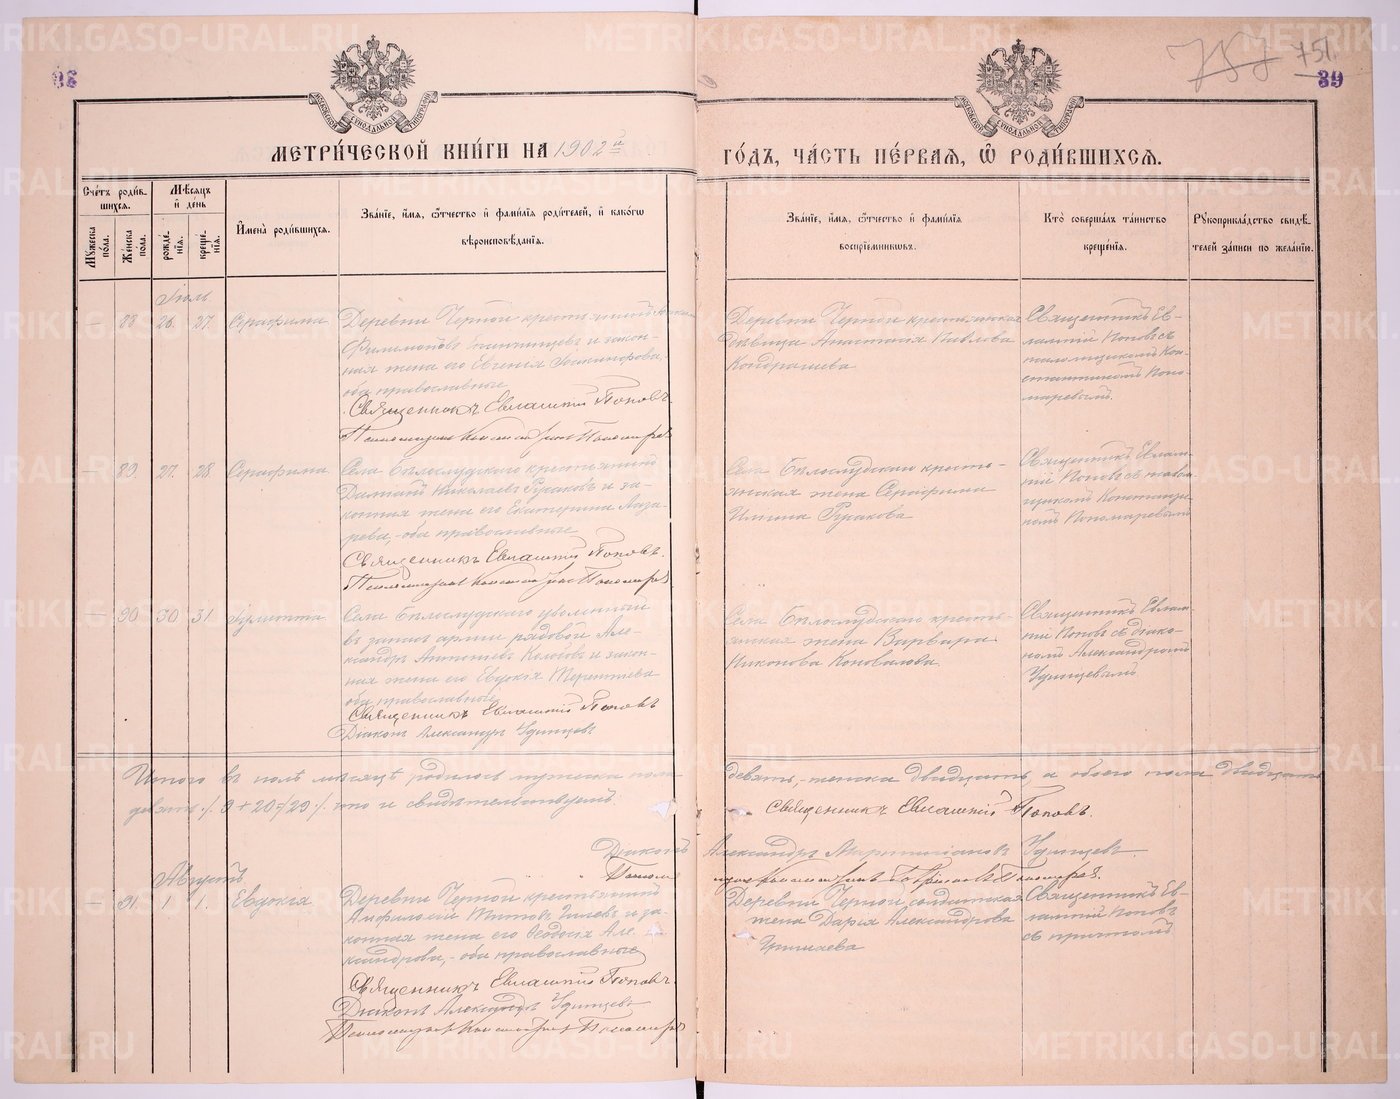 98
757
751
89
МОСКОВСКОЙ СѴНОДАЛЬНОЙ ТИПОГРАФІИ
МОСКОВСКОЙ СѴНОДАЛЬНОЙ ТИПОГРАФІИ
МЕТРИ́ЧЕСКОЙ КНИ́ГИ НА 1902й
ГО́ДЪ, ЧА́СТЬ ПЕ́РВАЯ, Ѽ РОДИ́ВШИХСЯ.
Сче́тъ роди́в-
шихся.
Мѣ́сяцъ
и҆ де́нь
Му́жеска
по́ла.
Же́нска
по́ла.
рожде́-
нія.
креще́-
нія.
И҆мена̀ роди́вшихся.
Зва́ніе, и҆́мя, ѻ҆́тчество и҆ фами́лія роди́телей, и҆ како́гѡ
вѣроисповѣ́данія.
Зва́ніе, и҆́мя, ѻ҆́тчество и҆ фами́лія
воспріе́мникѡвъ.
Кто̀ соверша́лъ та́инство
креще́нія.
Рꙋкоприкла́дство свидѣ́-
телей за́писи по жела́нію.
Іюль
— 88 26. 27. Серафима
Деревни Черной крестьянинъ
Филимоновъ и закон-
ная жена его Евгенія
оба православные
Священникъ Евлампій Поповъ.
Псаломщикъ Константинъ Пономаревъ
Деревни Черной крестьянская
дѣвица Анастасія Павлова
Кондрашева
Священникъ Ев-
лампій Поповъ съ
псаломщикомъ Кон-
стантиномъ Поно-
маревымъ.
— 89 27. 28. Серафима
Села Бѣлослудскаго крестьянинъ
Николаевъ Русаковъ и за-
конная жена его Екатерина Лаза-
рева, оба православные
Священникъ Евлампій Поповъ.
Псаломщикъ Константинъ Пономаревъ
Села Бѣлослудскаго кресть-
янская жена Серафима
Русакова
Священникъ Евлам-
пій Поповъ съ псалом-
щикомъ Константи-
номъ Пономаревымъ
— 90 30. 31. Іулитта
Села Бѣлослудскаго уволенный
въ запасъ арміи рядовой Але-
ксандръ Антоніевъ и закон-
ная жена его Евдокія Терентіева
оба православные
Священникъ Евлампій Поповъ
Діаконъ Александръ Удинцевъ
Села Бѣлослудскаго кресть-
янская жена Варвара
Никонова Коновалова.
Священникъ Евлам-
пій Поповъ съ діако-
номъ Александромъ
Удинцевымъ
Итого въ іюлѣ мѣсяцѣ родилось мужеска пола
девять, женска двадцать а обоего пола двадцать
девять /. 9 + 20 = 29 /. что и свидѣтельствуемъ.
Священникъ Евлампій Поповъ.
Діаконъ Александръ Удинцевъ.
Августъ
— 91. 1. 1. Евдокія
Деревни Черной крестьянинъ
Титовъ и за-
конная жена его Ѳеодосія Але-
ксандрова, — оба православные
Священникъ Евлампій Поповъ
Діаконъ Александръ Удинцевъ
Псаломщикъ Константинъ Пономаревъ
Деревни Черной солдатская
жена Дарія Александрова
Священникъ Ев-
лампій Поповъ
съ причтомъ
METRIKI.GASO-URAL.RU